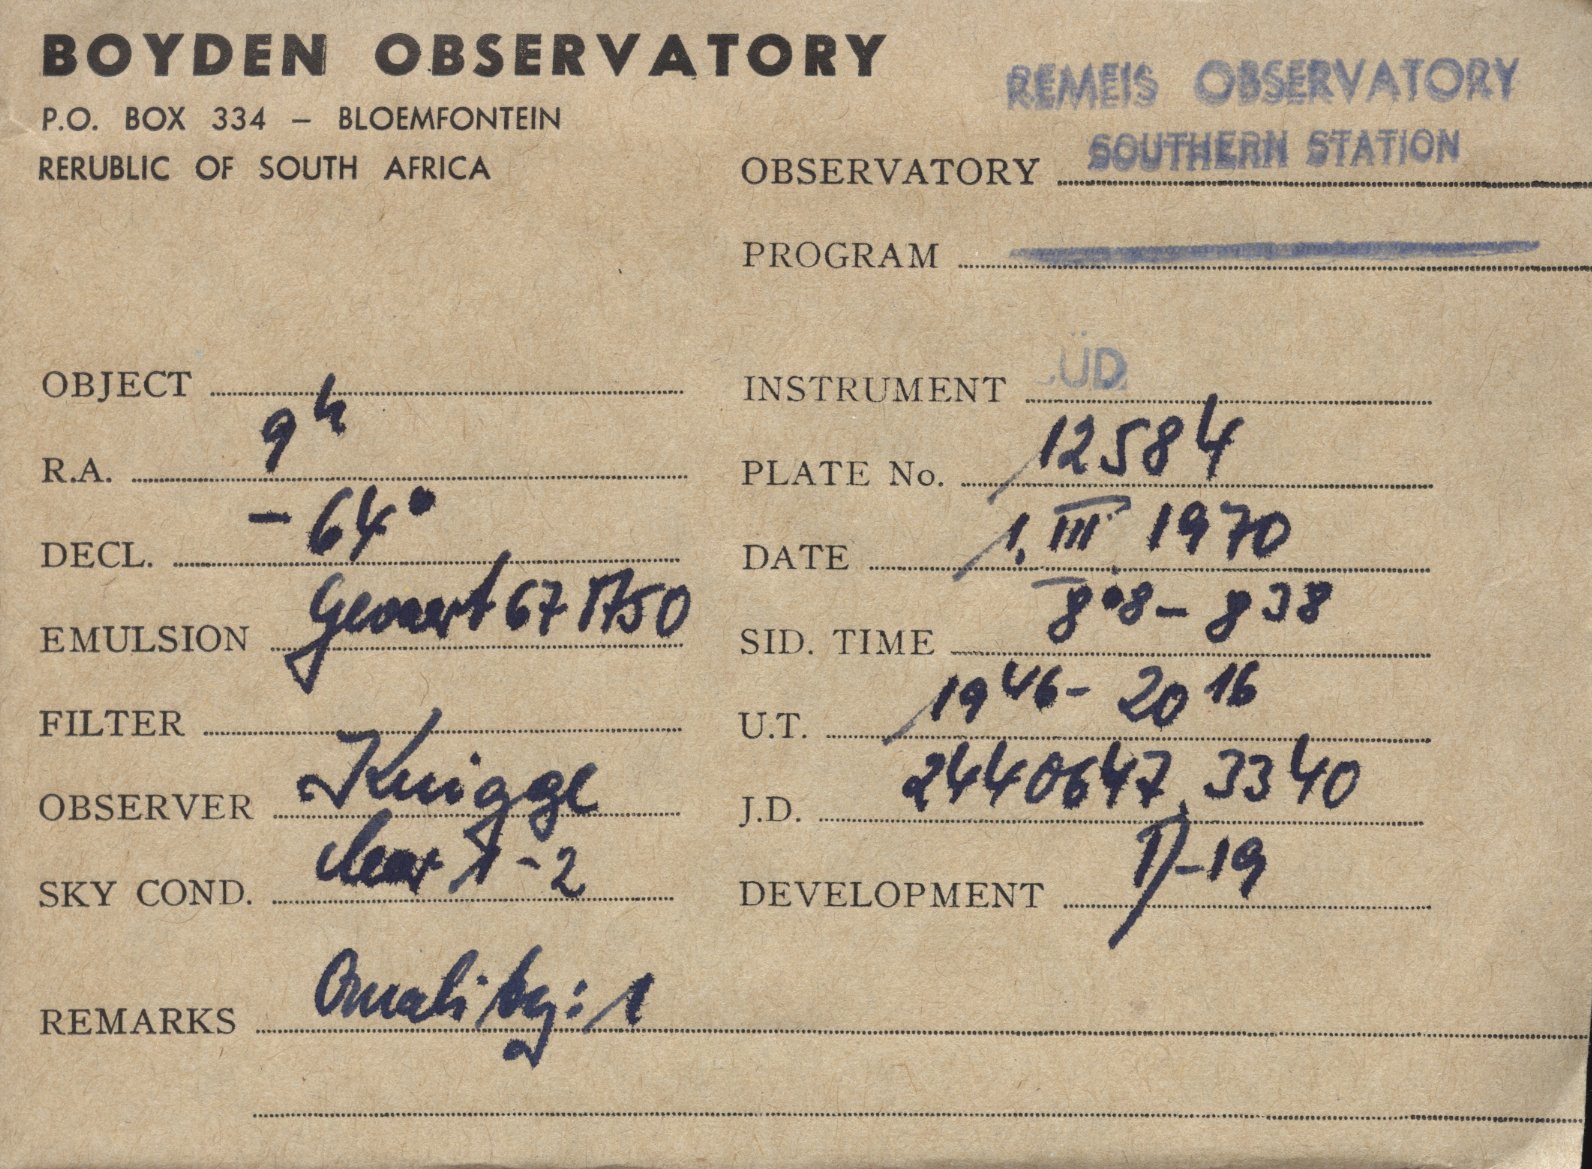 BOYDEN OBSERVATORY
P.O. BOX 334 – BLOEMFONTEIN
RERUBLIC OF SOUTH AFRICA
REMEIS OBSERVATORY
SOUTHERN STATION
OBSERVATORY
PROGRAM
OBJECT
R.A. 9h
DECL. – 64°
EMULSION Gevaert 67 A50
FILTER
OBSERVER Knigge
SKY COND. clear 1–2
INSTRUMENT ÜD
PLATE No. 12584
DATE 1. III 1970
SID. TIME 8 08 – 8 38
U.T. 19 46 – 20 16
J.D. 2440647,3340
DEVELOPMENT D–19
REMARKS Quality: 1